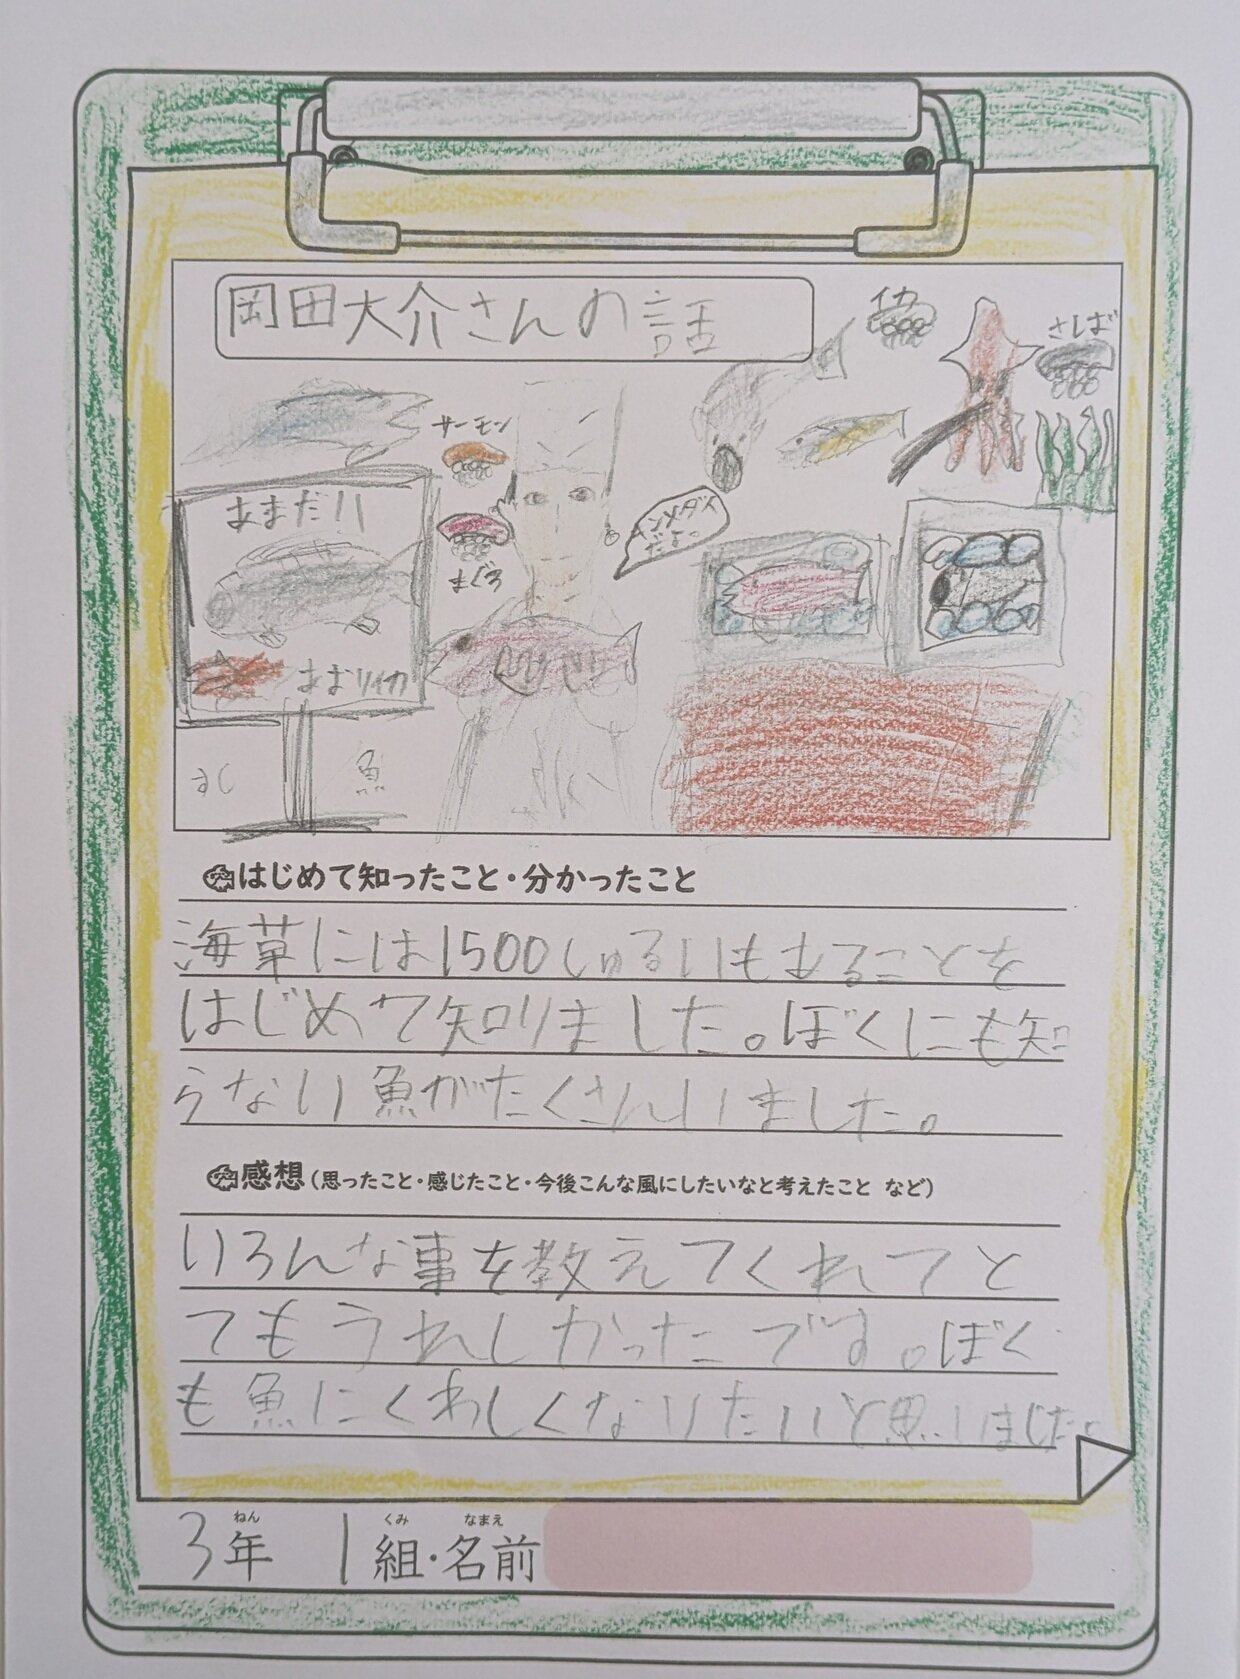 岡田大介さんの話
イカ
さしば
サーモン
あまだい
まぐろ
キンメダイ
だよ
あおりイカ
すし
魚
はじめて知ったこと・分かったこと
海草には1500しゅるいもあることを
はじめて知りました。ぼくにも知
らない魚がたくさんいました。
感想(思ったこと・感じたこと・今後こんな風にしたいなと考えたこと など)
いろんな事を教えてくれてと
てもうれしかったです。ぼく
も魚にくわしくなりたいと思いました。
ねん くみ なまえ
3年 1組・名前